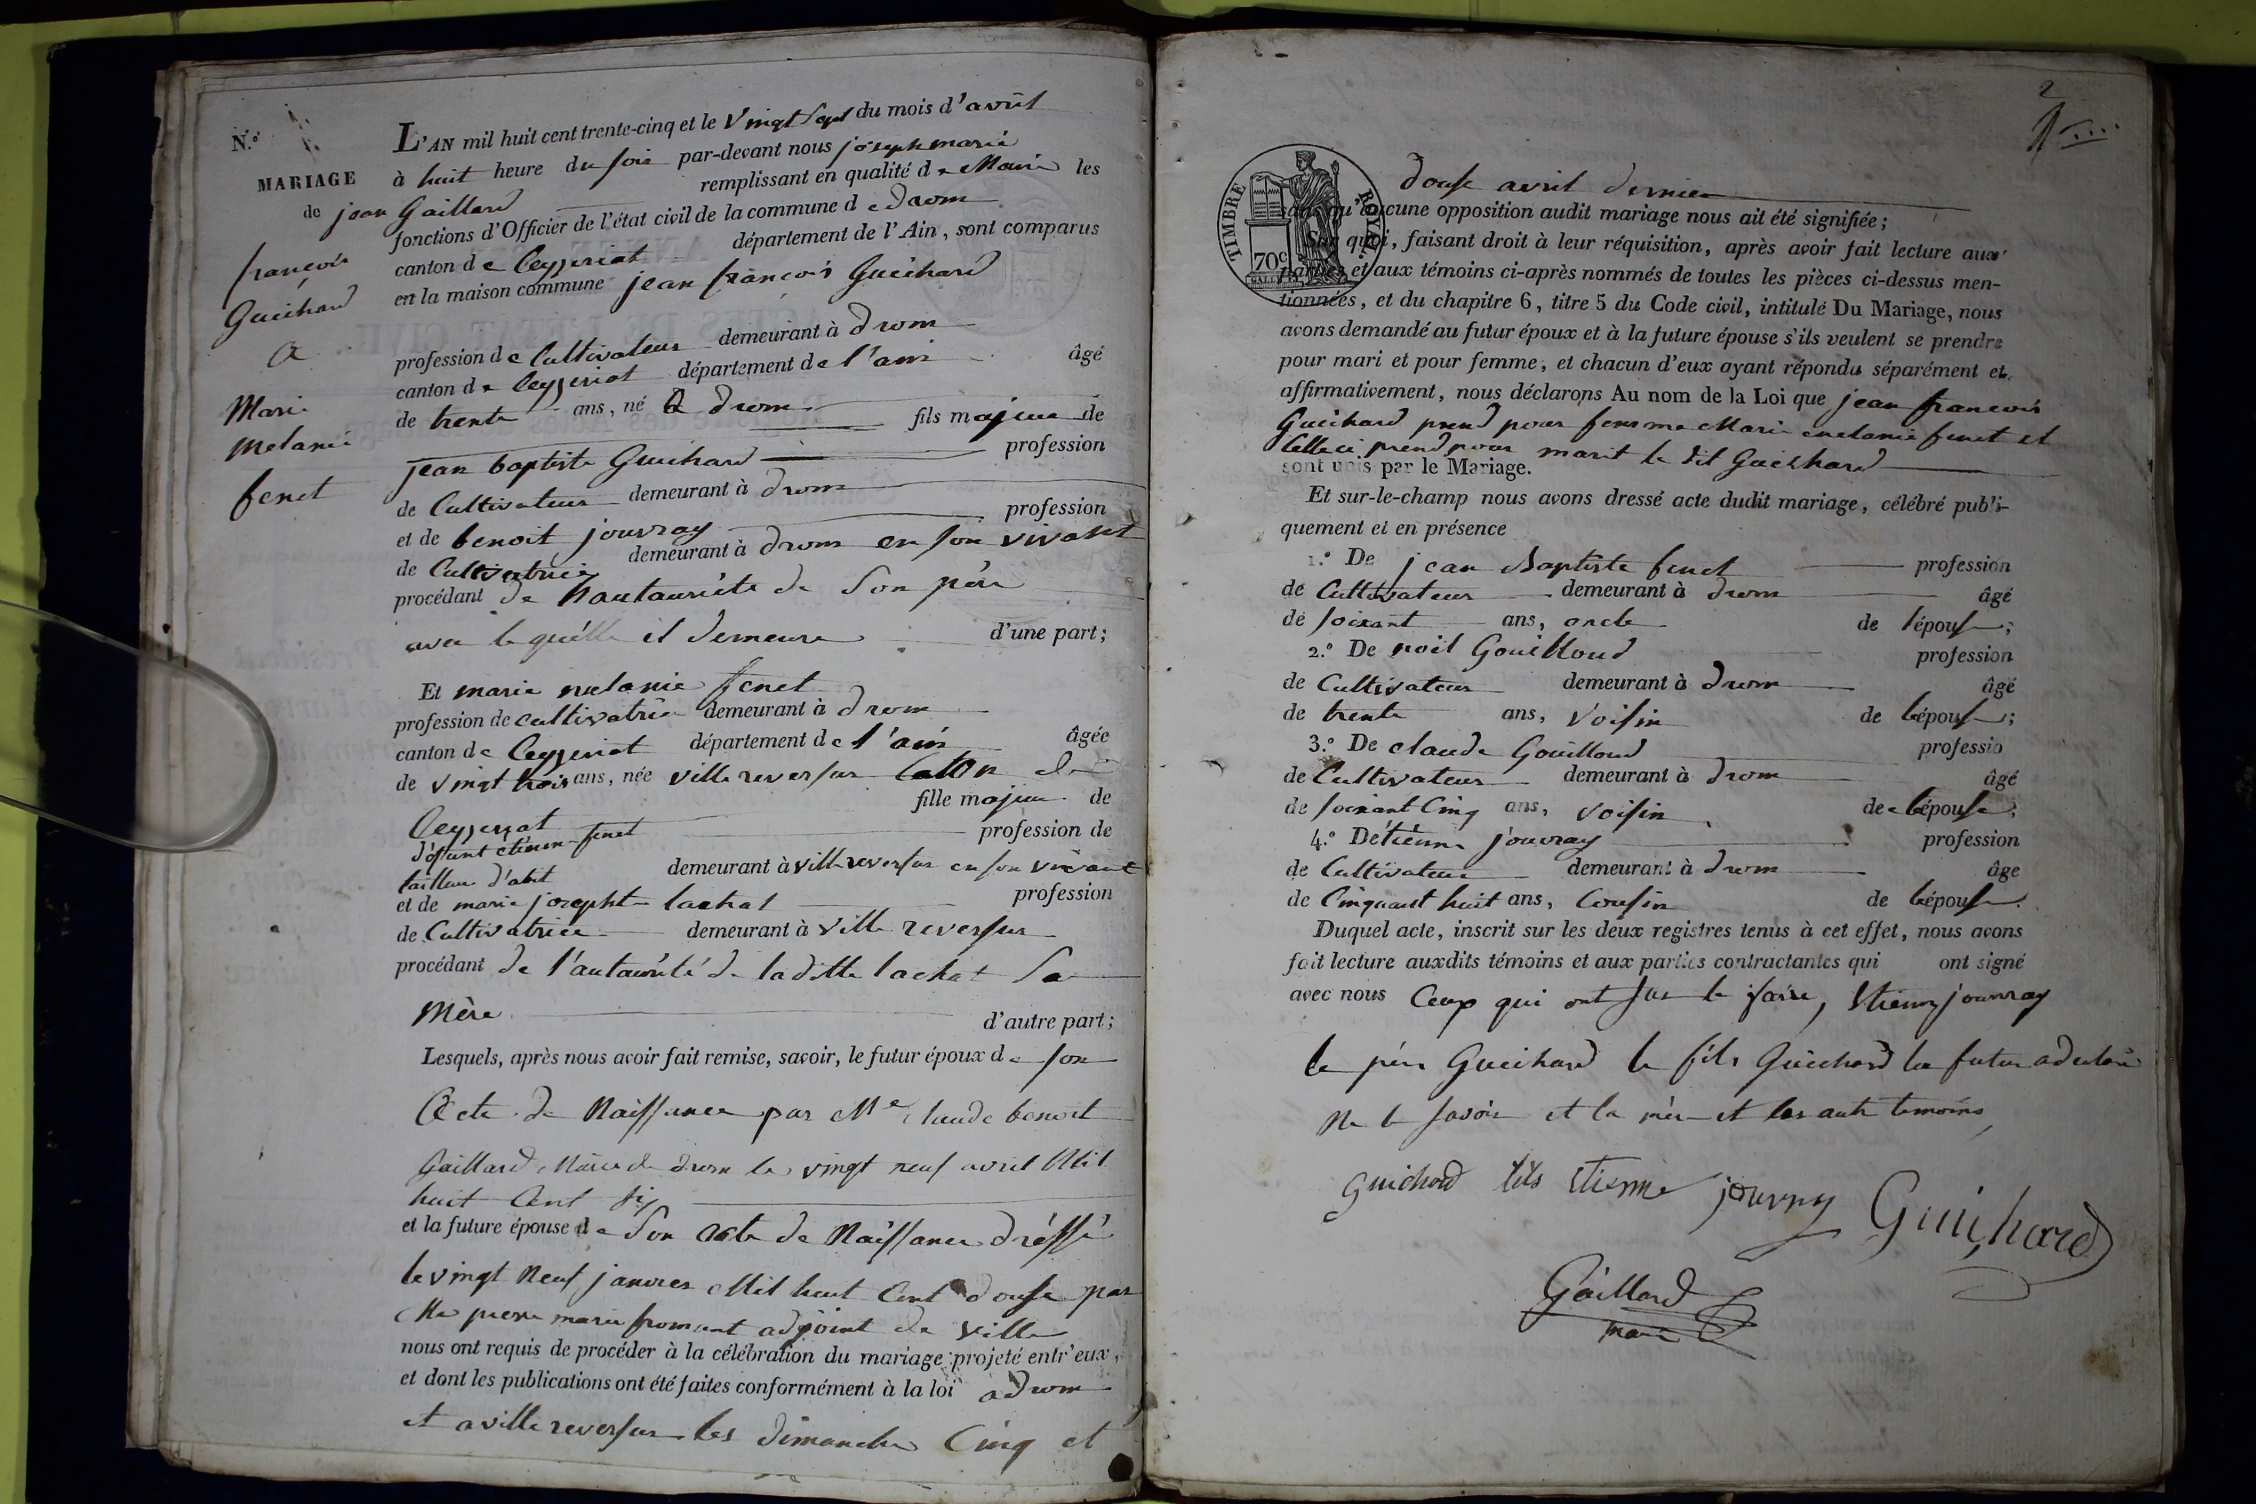 N.º
MARIAGE
de jean
françois
Guichard
a
Marie
melanie
fenet
L'AN mil huit cent trente-cinq et le vingt sept du mois d'avril
à huit heure du soir par-devant nous joseph marie
Gaillard remplissant en qualité de Maire les
fonctions d'Officier de l'état civil de la commune de drom
canton de Ceyzeriat département de l'Ain, sont comparus
en la maison commune jean françois Guichard
profession de Cultivateur demeurant à drom
canton de Ceyzeriat département de l'ain âgé
de trente ans, né a drom fils majeur de
jean baptiste Guichard profession
de Cultivateur demeurant à drom
et de benoit jouvray profession
de Cultivatrice demeurant à drom en son vivant
procédant de hautaurité de Son père
avec le quélle il demeure d'une part;
Et marie melanie fenet
profession de cultivatrice demeurant à drom
canton de Ceyzeriat département de l'ain âgée
de vingt trois ans, née villereversur Catton de
Ceyzeriat fille majeur de
défunt etienne fenet profession de
tailleur d'abit demeurant à villereversur en son vivant
et de marie josephte lachat profession
de Cultivatrice demeurant à ville reversur
procédant de l'autaurité de la ditte lachat Sa
mère d'autre part;
Lesquels, après nous avoir fait remise, savoir, le futur époux de son
Acte de Naissance par Me Claude benoit
Gaillard Maire de drom le vingt neuf avril Mil
huit Cent six
et la future épouse de Son acte de Naissance dréssé
le vingt Neuf janvier Mil huit Cent douse par
Me pierre marie froment adjoint de ville
nous ont requis de procéder à la célébration du mariage projeté entr'eux,
et dont les publications ont été faites conformément à la loi a drom
et a ville reversur les dimanche Cinq et
2
TIMBRE ROYAL
70c
douse avril dernier
sans qu'aucune opposition audit mariage nous ait été signifiée;
Sur quoi, faisant droit à leur réquisition, après avoir fait lecture aux
parties et aux témoins ci-après nommés de toutes les pièces ci-dessus men-
tionnées, et du chapitre 6, titre 5 du Code civil, intitulé Du Mariage, nous
avons demandé au futur époux et à la future épouse s'ils veulent se prendre
pour mari et pour femme, et chacun d'eux ayant répondu séparément et
affirmativement, nous déclarons Au nom de la Loi que jean francois
Guichard prend pour femme Marie melanie fenet et
Celle ci prend pour marit le dit Guichard
sont unis par le Mariage.
Et sur-le-champ nous avons dressé acte dudit mariage, célébré publi-
quement et en présence
1.º De jean Baptiste fenet profession
de Cultivateur demeurant à drom âgé
de soixant ans, oncle de lépouse;
2.º De noil Gouilloud profession
de Cultivateur demeurant à drom âgé
de trente ans, voisin de lépouse;
3.º De claude Gouilloud professio
de Cultivateur demeurant à drom âgé
de soixant Cinq ans, voisin de lépouse;
4.º Détienne jouvray profession
de Cultivateur demeurant à drom âge
de Cinquant huit ans, Cousin de lépouse.
Duquel acte, inscrit sur les deux registres tenus à cet effet, nous avons
fait lecture auxdits témoins et aux parties contractantes qui ont signé
avec nous Ceux qui ont sus le faire, Etienne jouvray
le père Guichard le fils Guichard la future a declaré
Ne le savoir et la mère et les autr temoins
Guichard fils etienne jouvray Guichard
Gaillard
maire